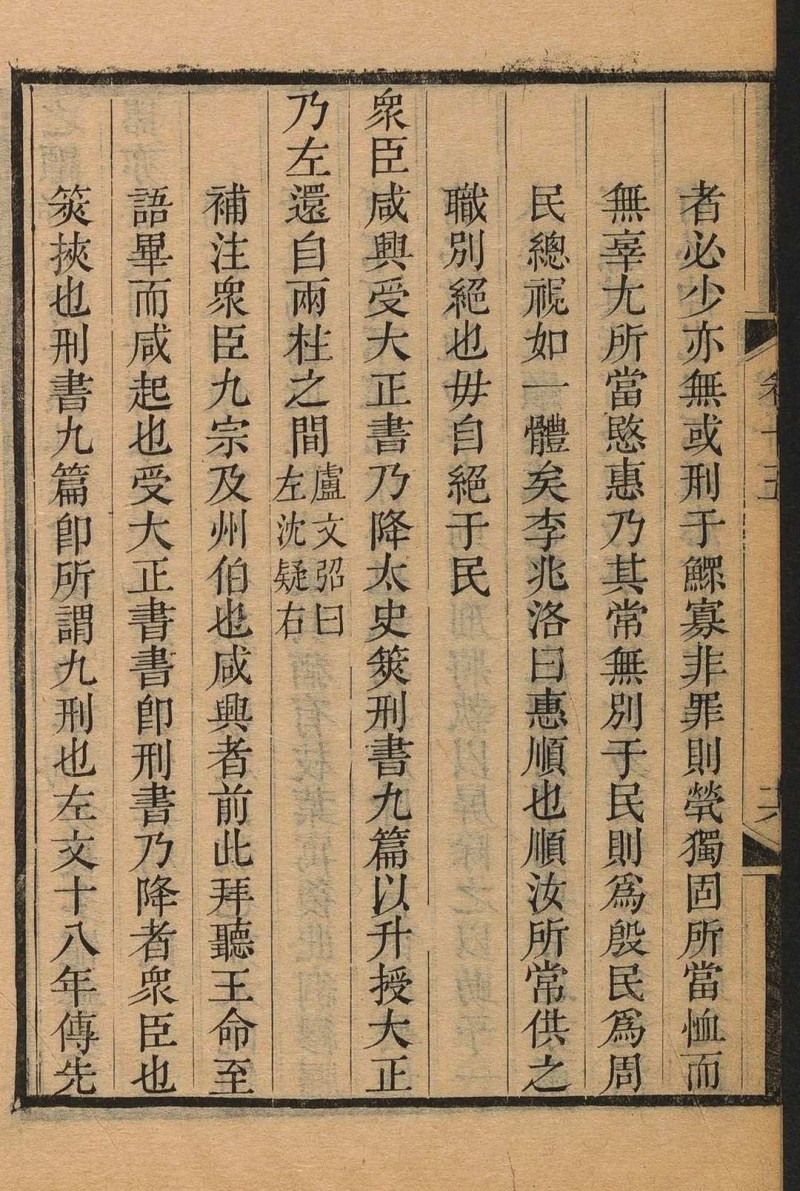 者必少亦無或刑于鰥寡非罪則煢獨固所當恤而
無辜尢所當愍惠乃其常無別于民則爲殷民爲周
民總視如一體矣李兆洛曰惠順也順汝所常供之
職別絕也毋自絕于民
衆臣咸興受大正書乃降太史筴刑書九篇以升授大正
乃左還自兩柱之間盧文弨曰左沈疑右
補注衆臣九宗及州伯也咸興者前此拜聽王命至
語畢而咸起也受大正書書卽刑書乃降者衆臣也
筴挾也刑書九篇卽所謂九刑也左文十八年傳先